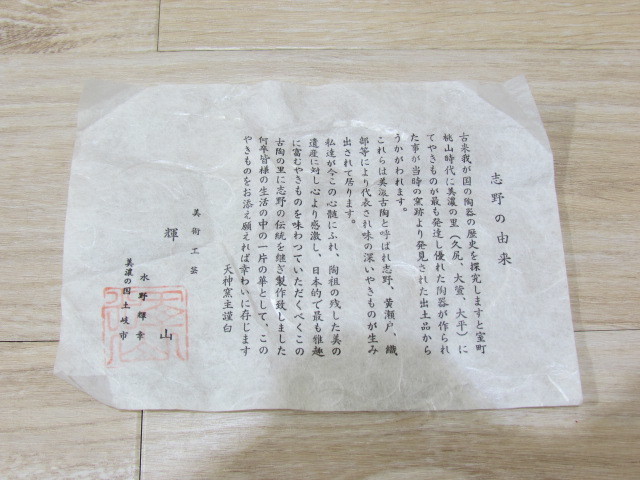 志野の由来
古来我が国の陶器の歴史を探究しますと室町
桃山時代に美濃の里(久尻、大萱、大平)に
てやきものが最も発達し優れた陶器が作られ
た事が当時の窯跡より発見された出土品から
うかがわれます。
これらは美濃古陶と呼ばれ志野、黄瀬戸、織
部等により代表され味の深いやきものが生み
出されて居ります。
私達が今この心髄にふれ、陶祖の残した美の
遺産に対し心より感激し、日本的で最も雅趣
に富むやきものを味わつていただくべくこの
古陶の里に志野の伝統を継ぎ製作致しました
何卒皆様の生活の中の一片の華として、この
やきものをお添え願えれば幸わいに存じます
天神窯主謹白
美術工芸
輝山
水野輝幸
美濃の国土岐市